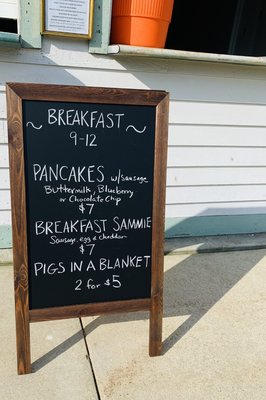 ~ BREAKFAST ~
9-12
PANCAKES w/sausage
Buttermilk, Blueberry
or Chocolate Chip
$7
BREAKFAST SAMMIE
Sausage, egg & cheddar
$7
PIGS IN A BLANKET
2 for $5